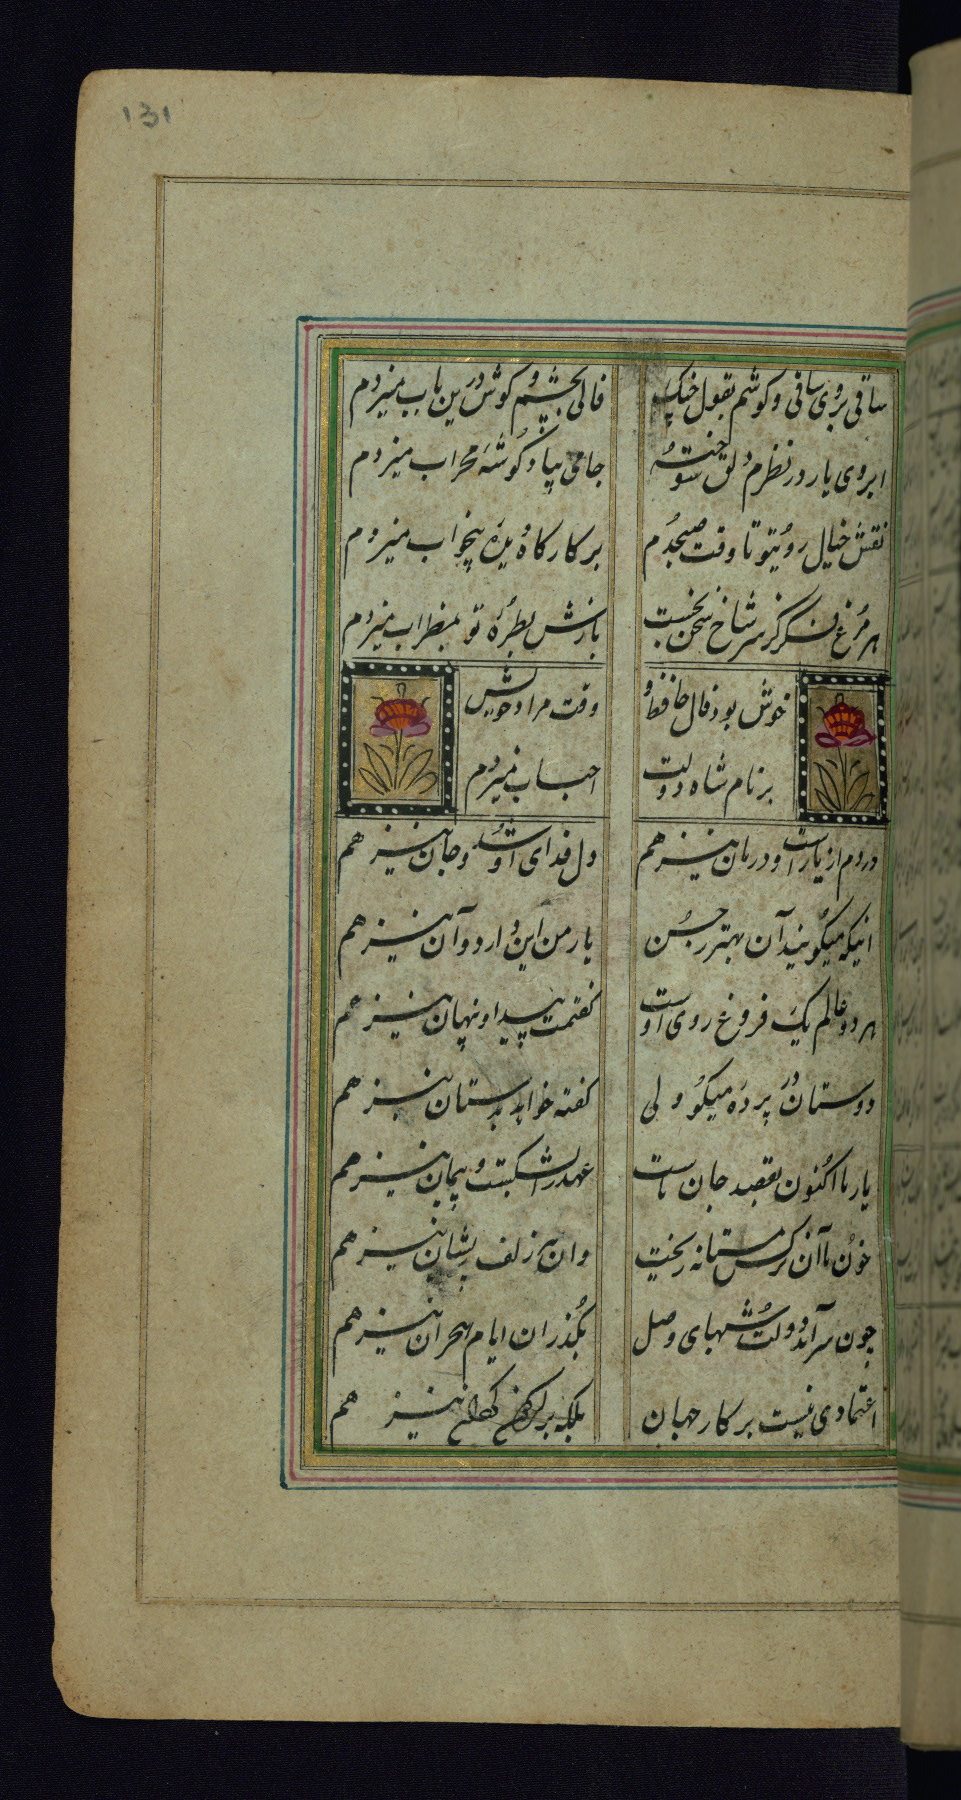 131
ساقی بروی ساقی و گوشم بقول چنگ
فالی بچشم و گوش درین باب میزدم
ابروی یار در نظرم دلق سوخته
جامی بیاد گوشه محراب میزدم
نقش خیال رویتو تا وقت صبحدم
بر کارکاه دیده بیخواب میزدم
هر مرغ فکر کز سر شاخ سخن بجست
بازش بطره تو بمضراب میزدم
خوش بود فال حافظ و
وقت مراد خویش
بر نام شاه دولت
احباب میزدم
دردم از یارست و درمان نیز هم
دل فدای او شد و جان نیز هم
اینکه میگویند آن بهتر ز حسن
یار من این دارد و آن نیز هم
هر دو عالم یک فروغ روی اوست
گفتمت پیدا و پنهان نیز هم
دوستان در پرده میگو ولی
گفته خواهد بدستان نیز هم
یار ما اکنون بقصد جان ماست
عهد را بشکست و پیمان نیز هم
خون ما آن نرگس مستانه ریخت
وان سر زلف پریشان نیز هم
چون سرآمد دولت شبهای وصل
بگذران ایام هجران نیز هم
اعتمادی نیست بر کار جهان
بلکه بر نیز هم